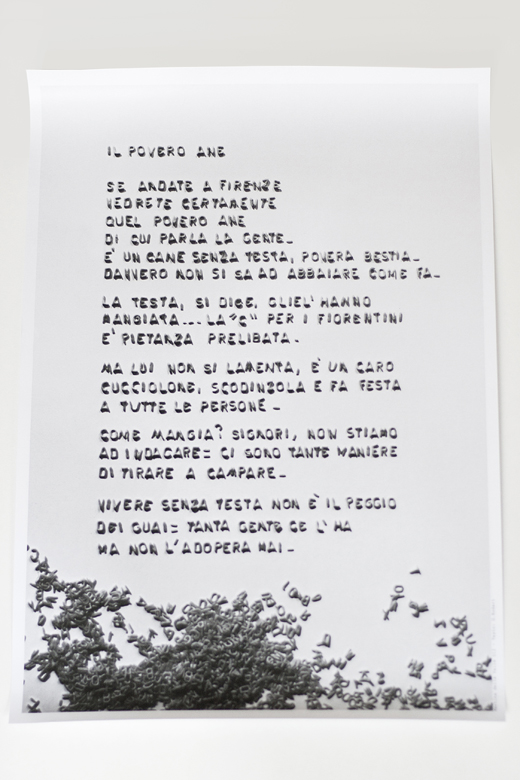 IL POVERO ANE
SE ANDATE A FIRENZE
VEDRETE CERTAMENTE
QUEL POVERO ANE
DI CUI PARLA LA GENTE.
E' UN CANE SENZA TESTA, POVERA BESTIA.
DAVVERO NON SI SA AD ABBAIARE COME FA.
LA TESTA, SI DICE, GLIEL'HANNO
MANGIATA... LA "C" PER I FIORENTINI
E' PIETANZA PRELIBATA.
MA LUI NON SI LAMENTA, E' UN CARO
CUCCIOLONE, SCODINZOLA E FA FESTA
A TUTTE LE PERSONE.
COME MANGIA? SIGNORI, NON STIAMO
AD INDAGARE: CI SONO TANTE MANIERE
DI TIRARE A CAMPARE.
VIVERE SENZA TESTA NON E' IL PEGGIO
DEI GUAI: TANTA GENTE CE L'HA
MA NON L'ADOPERA MAI.